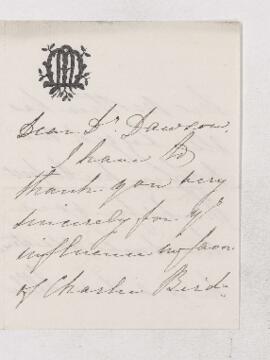 Dear Dr Dawson,
I have to
thank you very
sincerely for yr
influence in favor
of Charlie Bird-